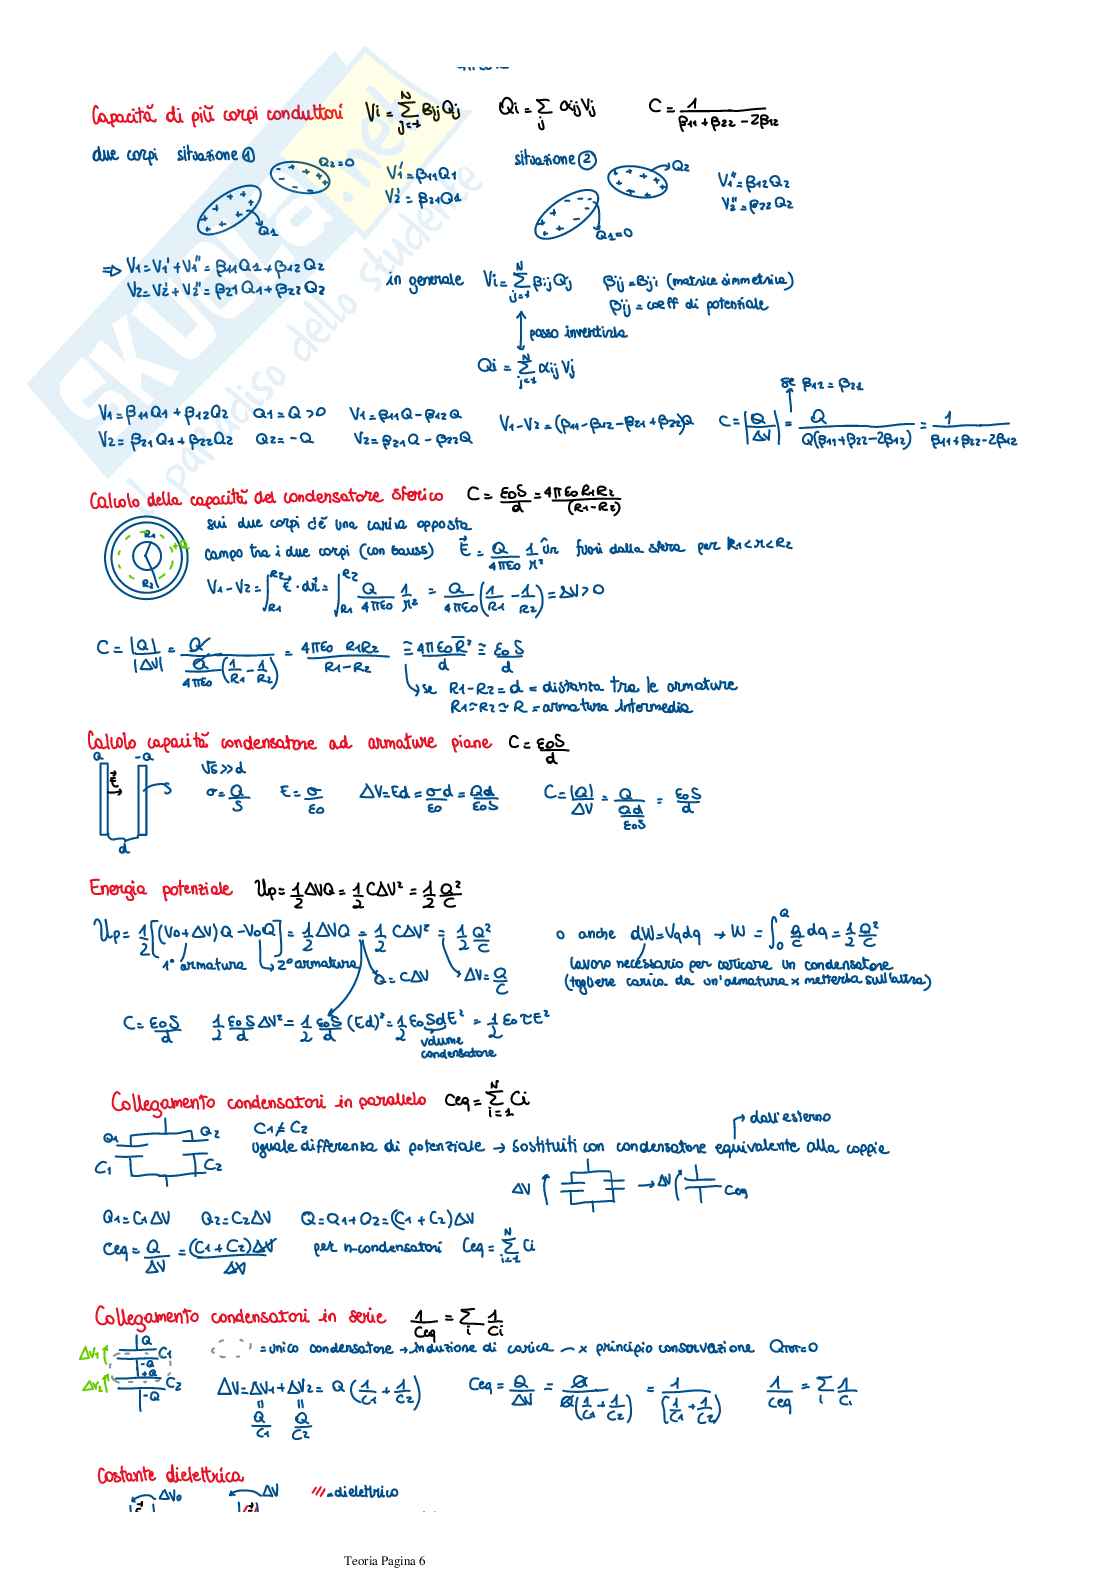 Capacità di più corpi conduttori Vi = Σ_{j=1}^{N} βij Qj Qi = Σ_j αij Vj C = 1/(β11+β22-2β12)
due corpi situazione ① Q2=0 V1' = β11Q1 situazione ② Q2 V1'' = β12Q2
V2' = β21Q1 V2'' = β22Q2
Q1 Q1=0
⇒ V1=V1'+V1'' = β11Q1+β12Q2 in generale Vi = Σ_{j=1}^{N} βij Qj βij = βji (matrice simmetrica)
V2=V2'+V2'' = β21Q1+β22Q2 βij = coeff di potenziale
posso invertirla
Qi = Σ_{j=1}^{N} αij Vj
se β12 = β21
V1=β11Q1+β12Q2 Q1=Q>0 V1=β11Q-β12Q V1-V2=(β11-β12-β21+β22)Q C=|Q/ΔV| = Q/(Q(β11+β22-2β12)) = 1/(β11+β22-2β12)
V2=β21Q1+β22Q2 Q2=-Q V2=β21Q-β22Q
Calcolo della capacità del condensatore sferico C = ε0S/d = 4πε0R1R2/(R1-R2)
sui due corpi c'è una carica opposta
R1 +Q R2
campo tra i due corpi (con Gauss) E = Q/(4πε0) 1/r² ûr fuori dalla sfera per R1<r<R2
V1-V2 = ∫_{R1}^{R2} E·dr = ∫_{R1}^{R2} Q/(4πε0) 1/r² = Q/(4πε0) (1/R1 - 1/R2) = ΔV>0
C = |Q|/|ΔV| = Q/(Q/(4πε0) (1/R1 - 1/R2)) = 4πε0 R1R2/(R1-R2) ≅ 4πε0R̄²/d ≅ ε0S/d
se R1-R2 = d = distanza tra le armature
R1≃R2≃R = armatura intermedia
Calcolo capacità condensatore ad armature piane C = ε0S/d
Q -Q E S d
√S>>d
σ=Q/S E=σ/ε0 ΔV=Ed=σd/ε0=Qd/ε0S C=|Q|/ΔV = Q/(Qd/ε0S) = ε0S/d
Energia potenziale Up = 1/2 ΔVQ = 1/2 CΔV² = 1/2 Q²/C
Up = 1/2 [(V0+ΔV)Q - V0Q] = 1/2 ΔVQ = 1/2 CΔV² = 1/2 Q²/C o anche dW=Vqdq → W = ∫_0^Q q/C dq = 1/2 Q²/C
1° armatura 2° armatura Q=CΔV ΔV=Q/C lavoro necessario per caricare un condensatore
(togliere carica da un'armatura x metterla sull'altra)
C=ε0S/d 1/2 ε0S/d ΔV² = 1/2 ε0S/d (Ed)² = 1/2 ε0SdE² = 1/2 ε0τE²
volume
condensatore
Collegamento condensatori in parallelo Ceq = Σ_{i=1}^{N} Ci
Q1 Q2 C1≠C2 dall'esterno
C1 C2 uguale differenza di potenziale → sostituiti con condensatore equivalente alla coppia
ΔV → ΔV Ceq
Q1=C1ΔV Q2=C2ΔV Q=Q1+Q2=(C1+C2)ΔV
Ceq = Q/ΔV = (C1+C2)ΔV/ΔV per n-condensatori Ceq = Σ_{i=1}^{N} Ci
Collegamento condensatori in serie 1/Ceq = Σ_i 1/Ci
ΔV1 Q C1 -Q = unico condensatore → induzione di carica → x principio conservazione Qtot=0
ΔV2 +Q C2 -Q ΔV=ΔV1+ΔV2 = Q(1/C1 + 1/C2) Ceq = Q/ΔV = Q/(Q(1/C1+1/C2)) = 1/[1/C1+1/C2] 1/Ceq = Σ_i 1/Ci
= Q/C1 = Q/C2
Costante dielettrica
ΔV0 ΔV = dielettrico
Teoria Pagina 6
SKUOLA.net
il paradiso dello studente